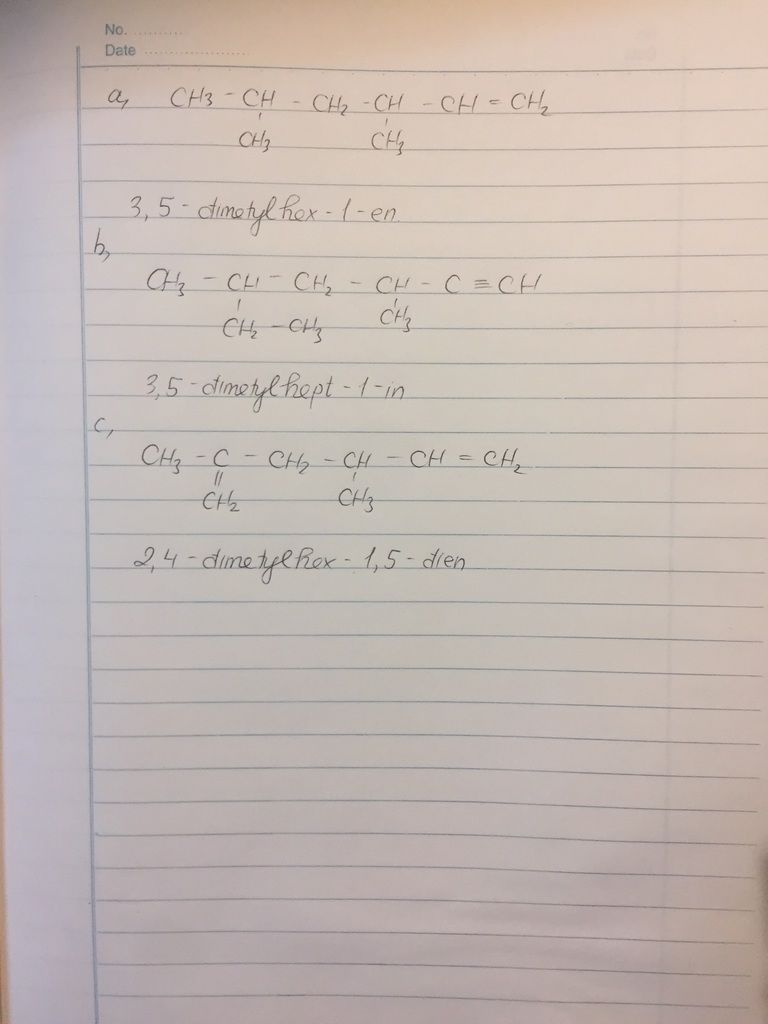 No. ..........
Date .....................
a, CH3 - CH - CH2 - CH - CH = CH2
CH3 CH3
3,5 - dimetylhex - 1 - en
b,
CH3 - CH - CH2 - CH - C ≡ CH
CH2 - CH3 CH3
3,5 - dimetylhept - 1 - in
c,
CH3 - C - CH2 - CH - CH = CH2
CH2 CH3
2,4 - dimetylhex - 1,5 - dien